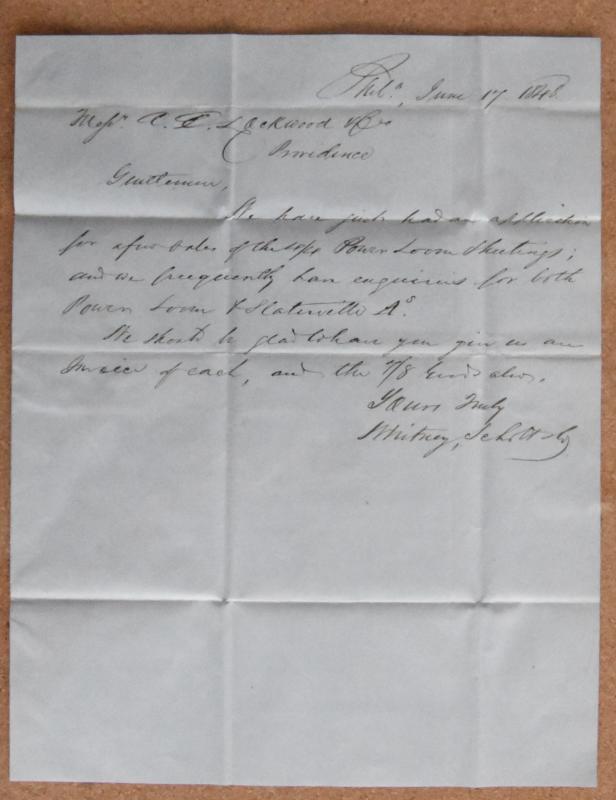 Phil.ª, June 17 1848.
Messrs. C. C. Lockwood & Co
Providence
Gentlemen,
We have just had an application
for a few bales of the Power Loom Sheetings;
and we frequently have enquiries for both
Power Loom & Slaterville A.s
We should be glad to have you give us an
Invoice of each, and the 7/8 also.
Yours Truly
Whitney, Schott & Co